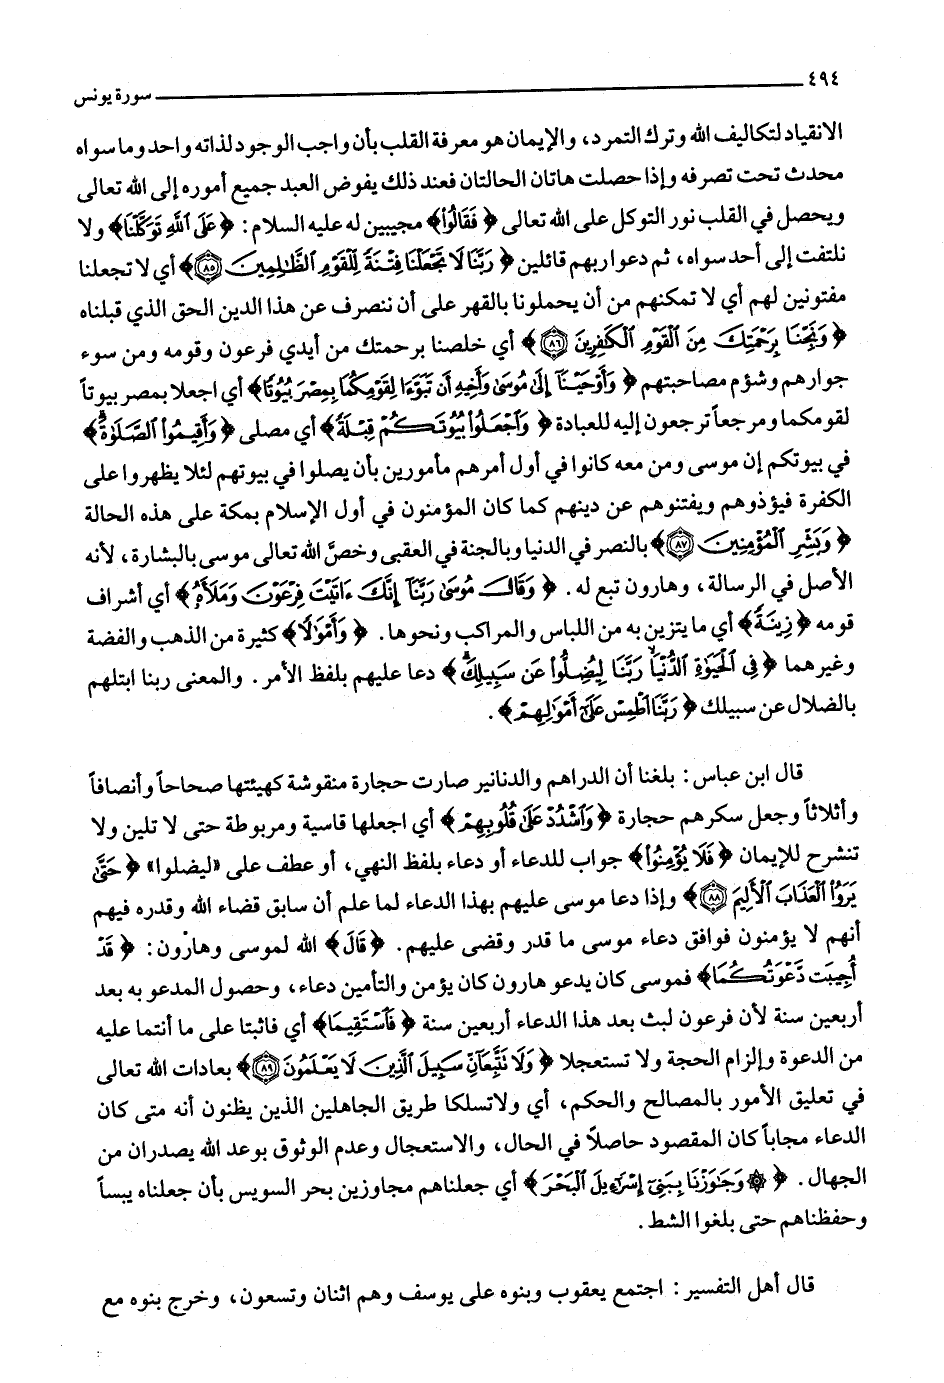 ٤٩٤ سورة يونس
الانقياد لتكاليف الله وترك التمرد، والإيمان هو معرفة القلب بأن واجب الوجود لذاته واحد وما سواه
محدث تحت تصرفه وإذا حصلت هاتان الحالتان فعند ذلك يفوض العبد جميع أموره إلى الله تعالى
ويحصل في القلب نور التوكل على الله تعالى ﴿ فَقَالُواْ﴾ مجيبين له عليه السلام: ﴿ عَلَى ٱللَّهِ تَوَكَّلْنَا﴾ ولا
نلتفت إلى أحد سواه، ثم دعوا ربهم قائلين ﴿ رَبَّنَا لَا تَجْعَلْنَا فِتْنَةً لِّلْقَوْمِ ٱلظَّٰلِمِينَ ٨٥﴾ أي لا تجعلنا
مفتونين لهم أي لا تمكنهم من أن يحملونا بالقهر على أن ننصرف عن هذا الدين الحق الذي قبلناه
﴿ وَنَجِّنَا بِرَحْمَتِكَ مِنَ ٱلْقَوْمِ ٱلْكَٰفِرِينَ ٨٦﴾ أي خلصنا برحمتك من أيدي فرعون وقومه ومن سوء
جوارهم وشؤم مصاحبتهم ﴿ وَأَوْحَيْنَآ إِلَىٰ مُوسَىٰ وَأَخِيهِ أَن تَبَوَّءَا لِقَوْمِكُمَا بِمِصْرَ بُيُوتًا﴾ أي اجعلا بمصر بيوتاً
لقومكما ومرجعاً ترجعون إليه للعبادة ﴿ وَٱجْعَلُواْ بُيُوتَكُمْ قِبْلَةً﴾ أي مصلى ﴿ وَأَقِيمُواْ ٱلصَّلَوٰةَۗ﴾
في بيوتكم إن موسى ومن معه كانوا في أول أمرهم مأمورين بأن يصلوا في بيوتهم لئلا يظهروا على
الكفرة فيؤذوهم ويفتنوهم عن دينهم كما كان المؤمنون في أول الإسلام بمكة على هذه الحالة
﴿ وَبَشِّرِ ٱلْمُؤْمِنِينَ ٨٧﴾ بالنصر في الدنيا وبالجنة في العقبى وخصَّ الله تعالى موسى بالبشارة، لأنه
الأصل في الرسالة، وهارون تبع له. ﴿ وَقَالَ مُوسَىٰ رَبَّنَآ إِنَّكَ ءَاتَيْتَ فِرْعَوْنَ وَمَلَأَهُۥ﴾ أي أشراف
قومه ﴿ زِينَةً﴾ أي ما يتزين به من اللباس والمراكب ونحوها. ﴿ وَأَمْوَٰلًا﴾ كثيرة من الذهب والفضة
وغيرهما ﴿ فِى ٱلْحَيَوٰةِ ٱلدُّنْيَا رَبَّنَا لِيُضِلُّواْ عَن سَبِيلِكَۖ﴾ دعا عليهم بلفظ الأمر. والمعنى ربنا ابتلهم
بالضلال عن سبيلك ﴿ رَبَّنَا ٱطْمِسْ عَلَىٰٓ أَمْوَٰلِهِمْ﴾.
قال ابن عباس: بلغنا أن الدراهم والدنانير صارت حجارة منقوشة كهيئتها صحاحاً وأنصافاً
وأثلاثاً وجعل سكرهم حجارة ﴿ وَٱشْدُدْ عَلَىٰ قُلُوبِهِمْ﴾ أي اجعلها قاسية ومربوطة حتى لا تلين ولا
تنشرح للإيمان ﴿ فَلَا يُؤْمِنُواْ﴾ جواب للدعاء أو دعاء بلفظ النهي، أو عطف على «ليضلوا» ﴿ حَتَّىٰ
يَرَوُاْ ٱلْعَذَابَ ٱلْأَلِيمَ ٨٨﴾ وإذا دعا موسى عليهم بهذا الدعاء لما علم أن سابق قضاء الله وقدره فيهم
أنهم لا يؤمنون فوافق دعاء موسى ما قدر وقضى عليهم. ﴿ قَالَ﴾ الله لموسى وهارون: ﴿ قَدْ
أُجِيبَت دَّعْوَتُكُمَا﴾ فموسى كان يدعو هارون كان يؤمن والتأمين دعاء، وحصول المدعو به بعد
أربعين سنة لأن فرعون لبث بعد هذا الدعاء أربعين سنة ﴿ فَٱسْتَقِيمَا﴾ أي فاثبتا على ما أنتما عليه
من الدعوة وإلزام الحجة ولا تستعجلا ﴿ وَلَا تَتَّبِعَآنِّ سَبِيلَ ٱلَّذِينَ لَا يَعْلَمُونَ ٨٩﴾ بعادات الله تعالى
في تعليق الأمور بالمصالح والحكم، أي ولاتسلكا طريق الجاهلين الذين يظنون أنه متى كان
الدعاء مجاباً كان المقصود حاصلاً في الحال، والاستعجال وعدم الوثوق بوعد الله يصدران من
الجهال. ﴿ ۞ وَجَٰوَزْنَا بِبَنِىٓ إِسْرَٰٓءِيلَ ٱلْبَحْرَ﴾ أي جعلناهم مجاوزين بحر السويس بأن جعلناه يبساً
وحفظناهم حتى بلغوا الشط.
قال أهل التفسير: اجتمع يعقوب وبنوه على يوسف وهم اثنان وتسعون، وخرج بنوه مع